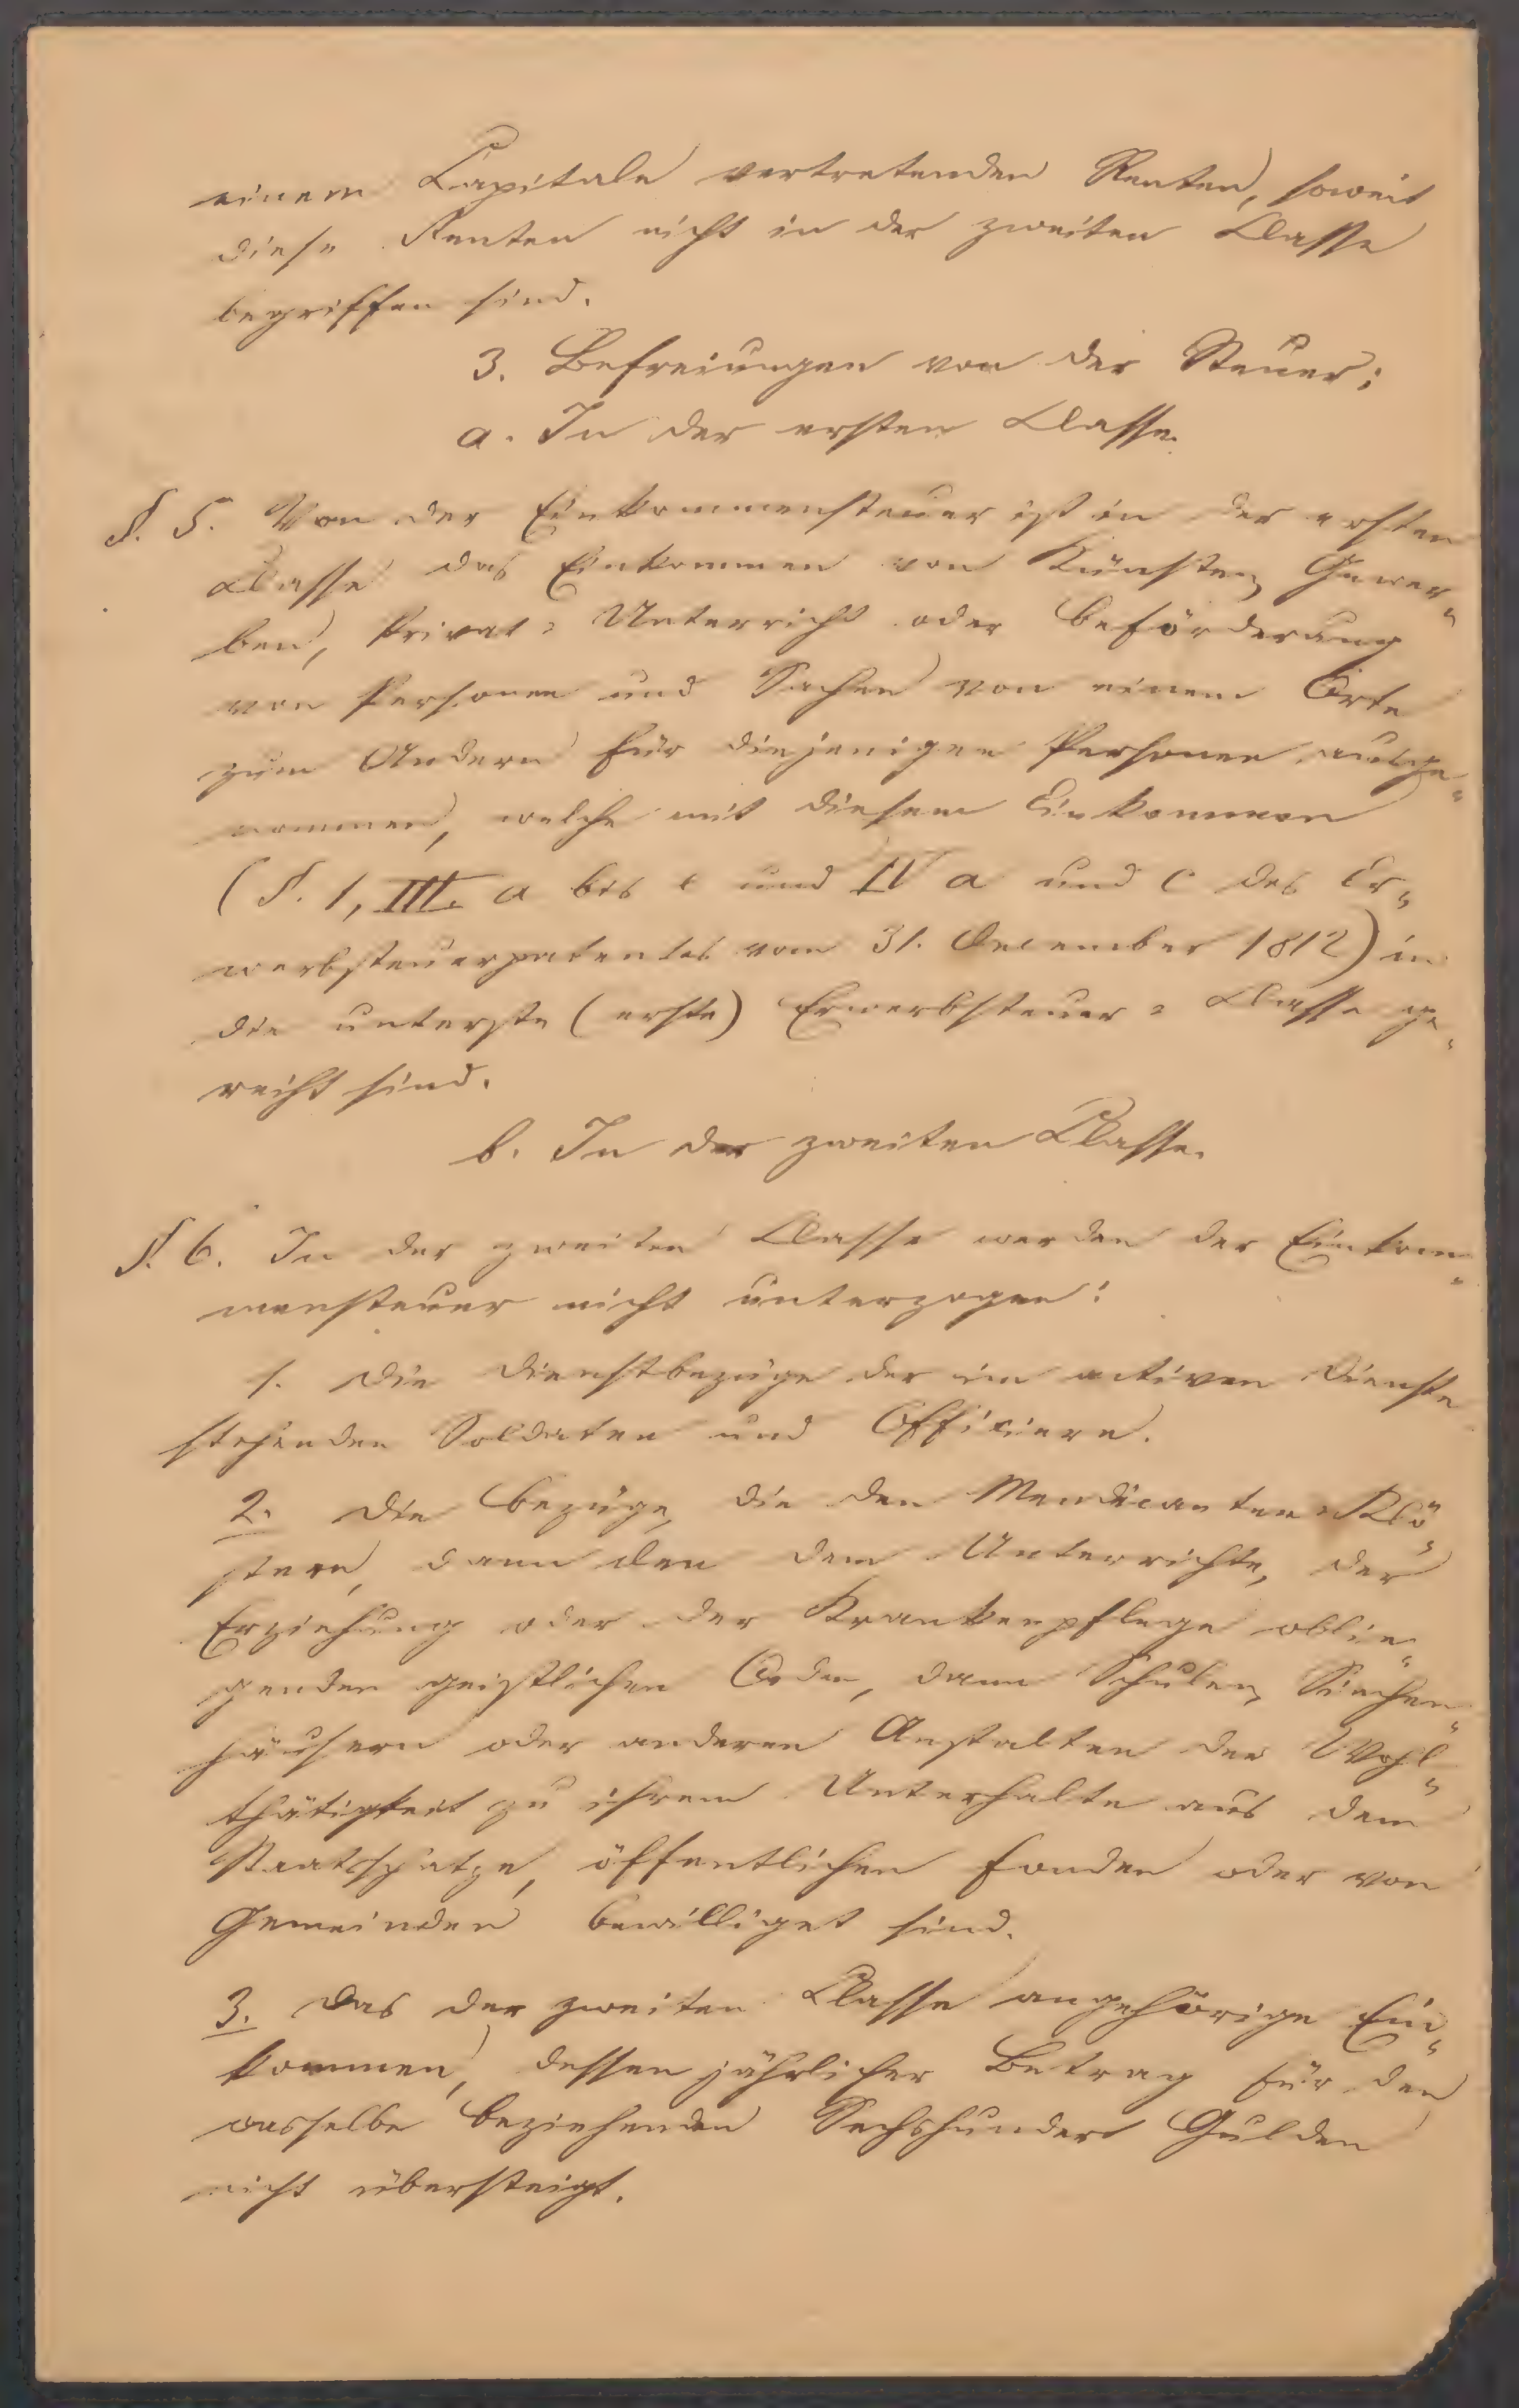 einem Capitale vertretenden Renten, soweit
diese Renten nicht in der zweiten Classe
begriffen sind.
3. Befreiungen von der Steuer;
a. In der ersten Classe.
§. 5. Von der Einkommensteuer ist in der ersten
Classe das Einkommen von Künsten, Gewer„
ben, Privat= Unterricht oder Beförderung
von Personen und Sachen von einem Orte
zum Andern für diejenigen Personen ausge„
nommen, welche mit diesem Einkommen
(§. 1, III. a bis c und IV a und c des Er„
werbsteuerpatentes vom 31. December 1812) in
die unterste (erste) Erwerbsteuer= Classe ge„
reiht sind.
b. In der zweiten Classe.
§. 6. In der zweiten Classe werden der Einkom„
mensteuer nicht unterzogen:
1. Die Dienstbezüge der im activen Dienste
stehenden Soldaten und Officiere.
2. Die Bezüge, die den Mendicanten=Klö„
stern, dann den dem Unterrichte, der
Erziehung oder der Krankenpflege oblie„
genden geistlichen Orden, dann Schulen, Siechen„
häusern oder anderen Anstalten der Wohl„
thätigkeit zu ihrem Unterhalte aus dem
Staatsschatze, öffentlichen Fonden oder von
Gemeinden bewilliget sind.
3. Das der zweiten Classe angehörige Ein„
kommen, dessen jährlicher Betrag für den
dasselbe beziehenden Sechshundert Gulden
nicht übersteigt.